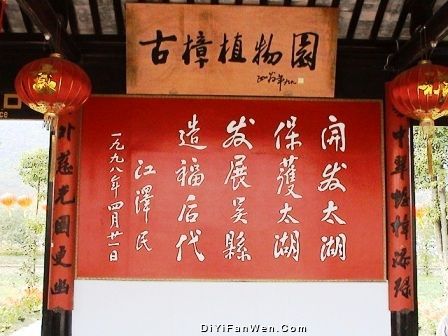 古樟植物園
開发太湖
保護太湖
发展吴縣
造福后代
江澤民
一九九八年四月廿一日
DiYiFanWen.Com